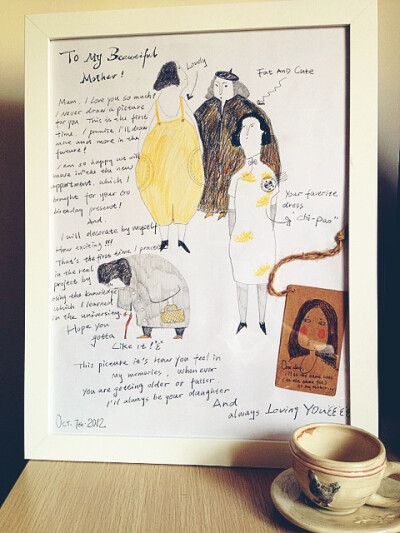 To My Beautiful
Mother!
Mum, I love you so much!
I never draw a picture
for you. This is the first
time, I promise I'll draw
more and more in the
future!
I am so happy we will
move into the new
appartment, which I
bought for your
present!
And.
I will decorate by myself
How exciting!!!
That's the first time I practice
in the real
project by
using the knowledge
which I learned
in the university.
Hope you
gotta
Like it!
This picture is how you feel in
my memories, whenever
You are getting older or fatter
I'll always be your daughter
And
always Loving YouEEEE
Oct. 7th. 2012
Lovely
Fat And Cute
Your favorite
dress
"chi-pao"
One day,